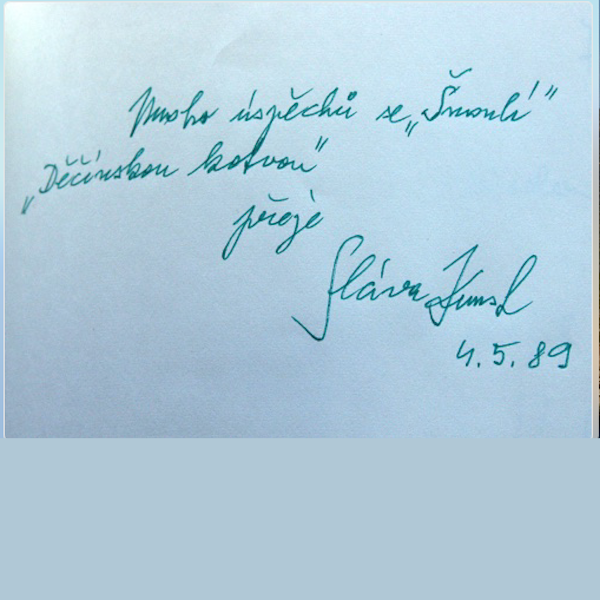 Mnoho úspěchů se „Šmoulí”
„Děčínskou kotvou”
přeje
Sláva Kunst
4.5.89